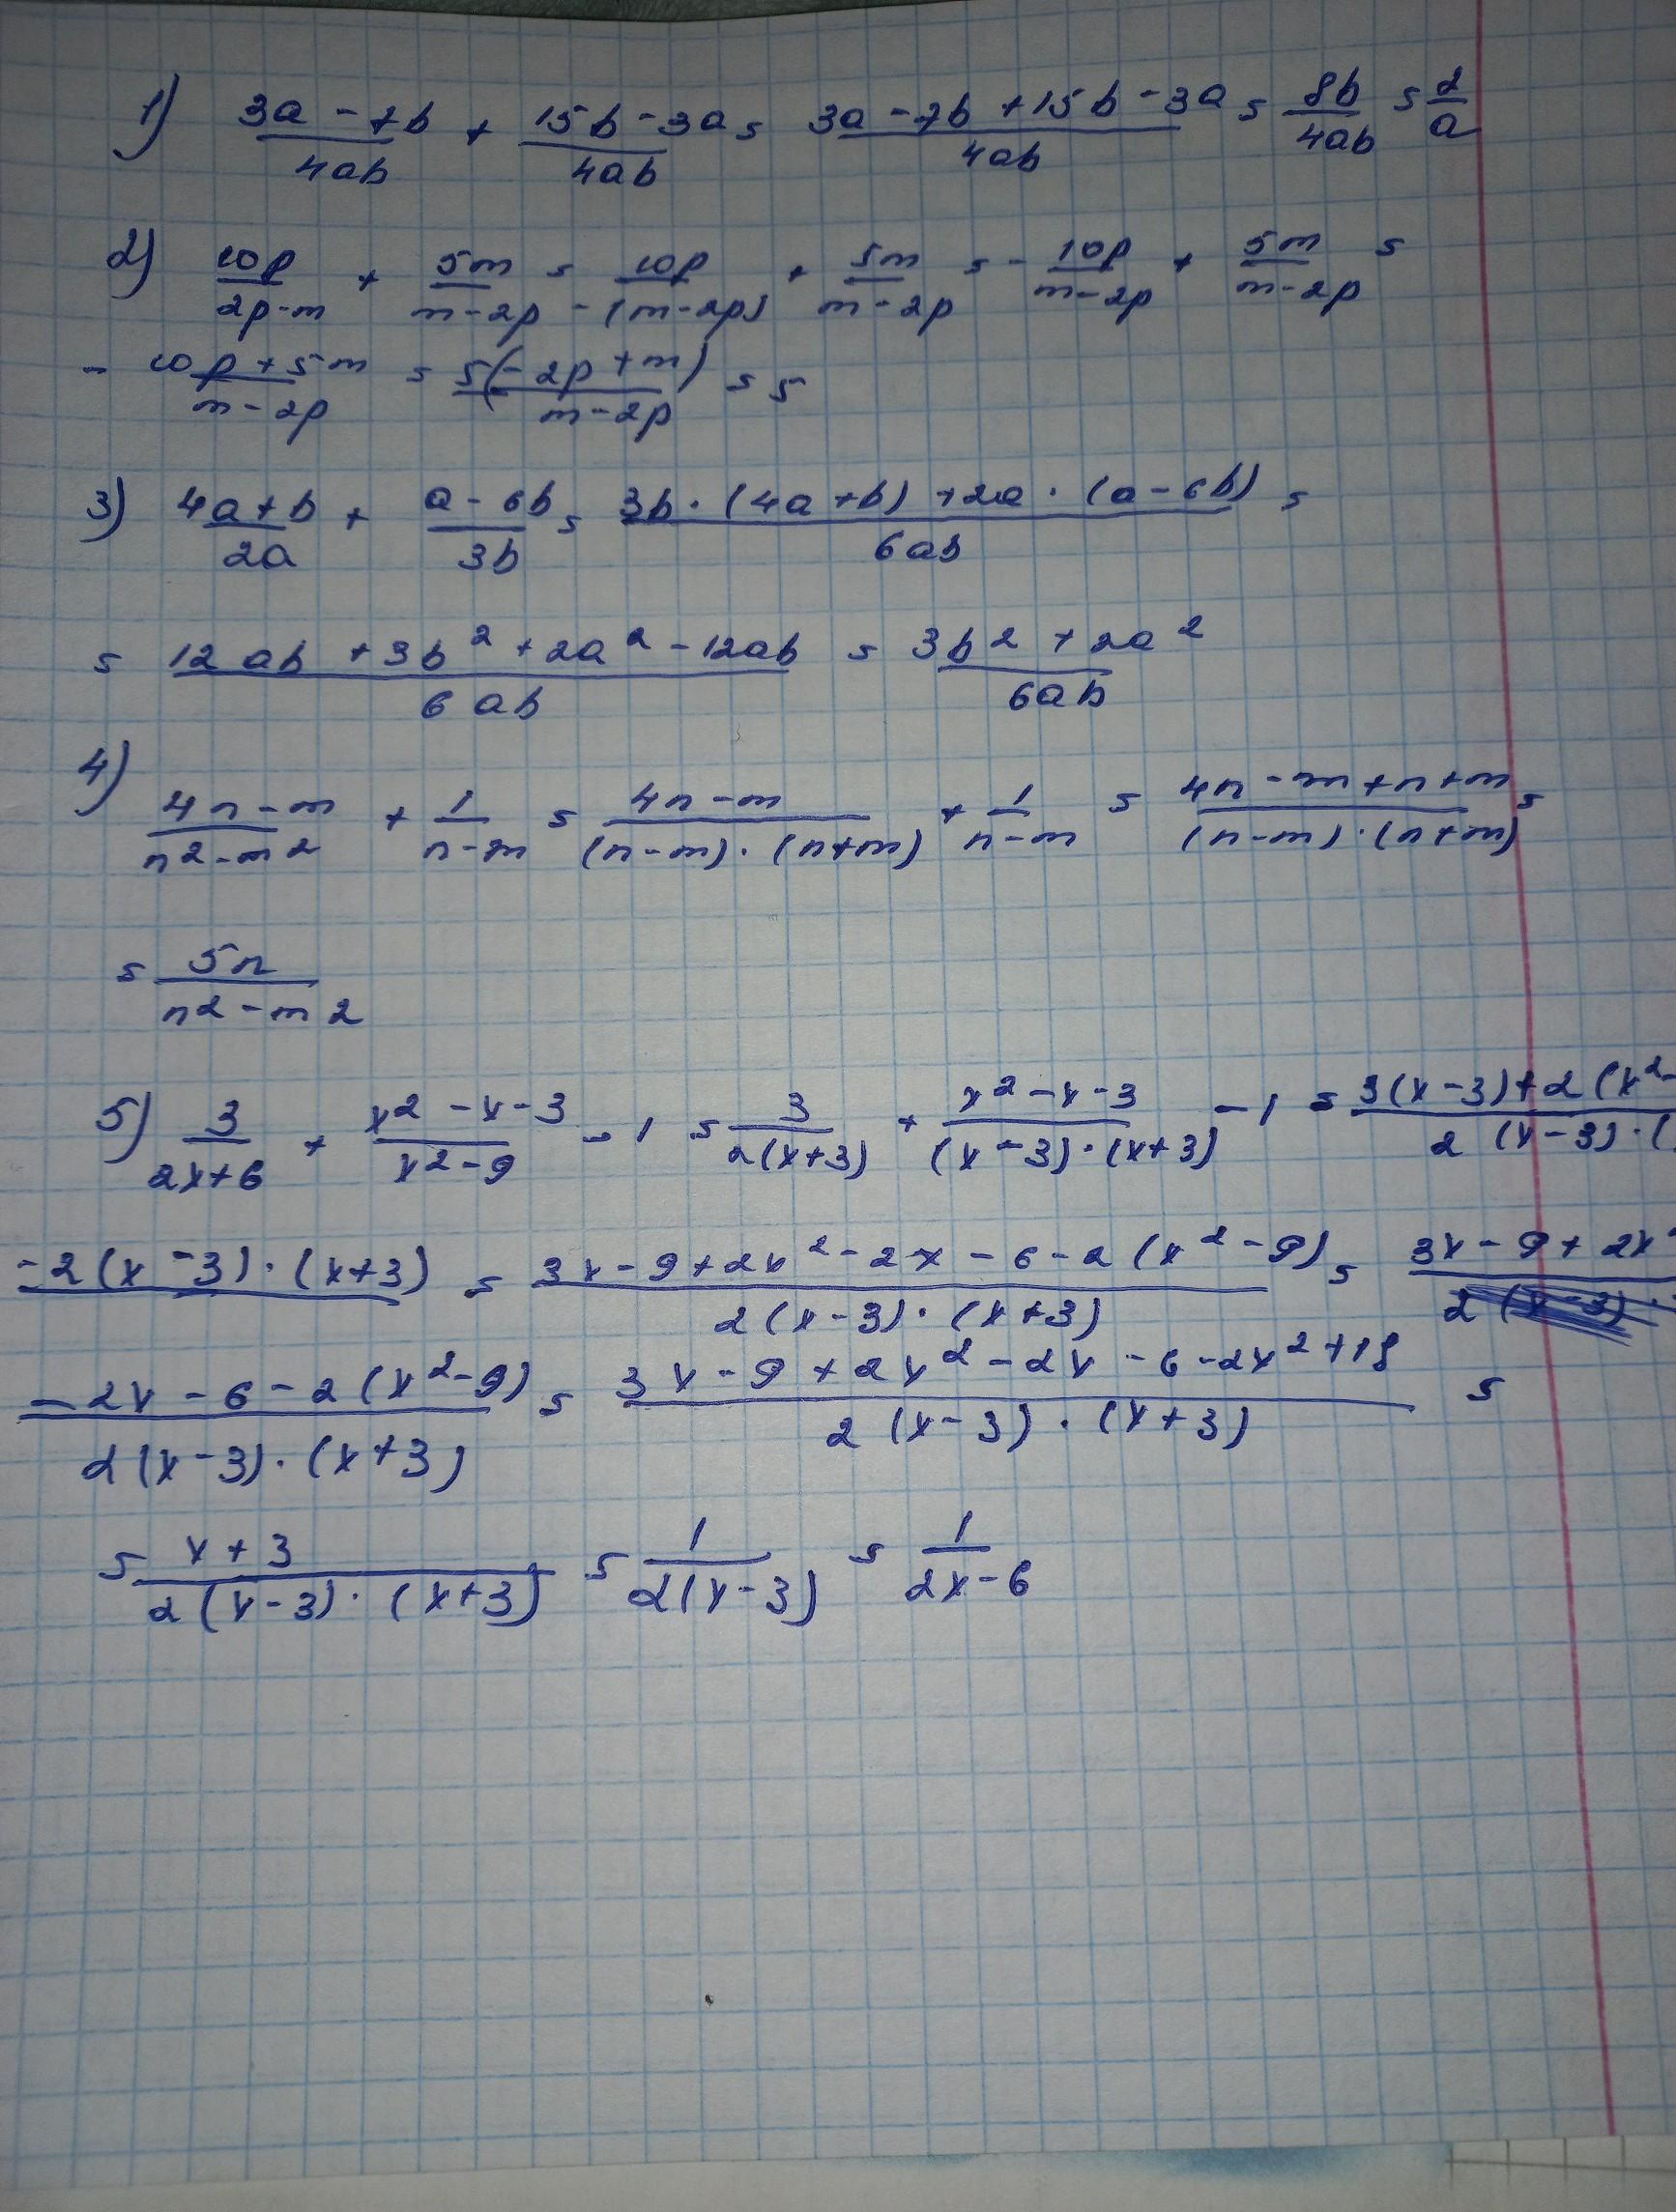 1) (3a - 7b)/(4ab) + (15b - 3a)/(4ab) = (3a - 7b + 15b - 3a)/(4ab) = 8b/(4ab) = 2/a
2) 10p/(2p-m) + 5m/(m-2p) = 10p/(-(m-2p)) + 5m/(m-2p) = - 10p/(m-2p) + 5m/(m-2p) =
(-10p+5m)/(m-2p) = 5(-2p+m)/(m-2p) = 5
3) (4a+b)/(2a) + (a-6b)/(3b) = (3b·(4a+b)+2a·(a-6b))/(6ab) =
= (12ab+3b²+2a²-12ab)/(6ab) = (3b²+2a²)/(6ab)
4) (4n-m)/(n²-m²) + 1/(n-m) = (4n-m)/((n-m)·(n+m)) + 1/(n-m) = (4n-m+n+m)/((n-m)·(n+m)) =
= 5n/(n²-m²)
5) 3/(2x+6) + (x²-x-3)/(x²-9) - 1 = 3/(2(x+3)) + (x²-x-3)/((x-3)·(x+3)) - 1 = 3(x-3)+2(x²- / 2(x-3)·(
-2(x-3)·(x+3) = (3x-9+2x²-2x-6-2(x²-9))/(2(x-3)·(x+3)) = 3x-9+2x²
(-2x-6-2(x²-9))/(2(x-3)·(x+3)) = (3x-9+2x²-2x-6-2x²+18)/(2(x-3)·(x+3)) =
= (x+3)/(2(x-3)·(x+3)) = 1/(2(x-3)) = 1/(2x-6)